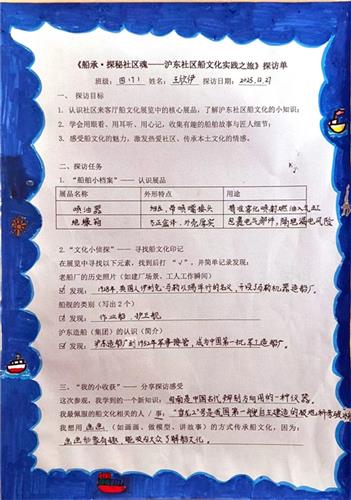 《船承·探秘社区魂——沪东社区船文化实践之旅》探访单
班级：四(7) 姓名：王欣伊 探访日期：2025.12.27
一、探访目标
1. 认识社区来客厅船文化展览中的核心展品，了解沪东社区船文化的小知识；
2. 学会用眼看、用耳听、用心记，收集有趣的船舶故事与匠人细节；
3. 感受船文化的魅力，激发热爱社区、传承本土文化的情感。
二、探访任务
1. “船舶小档案”—— 认识展品
展品名称 外形特点 用途
喷油器 带喷嘴接头 精准雾化喷射燃油入气缸
绝缘箱 外壳厚实
2. “文化小侦探”—— 寻找船文化印记
在展览中寻找以下元素，找到后打“√”，并简单记录：
老船厂的历史照片（如建厂场景、工人工作瞬间）
☑ 发现：1928年，英国人伊利包·马勒以瑞洋行的名义，开设马勒机器造船厂。
船舰的类别（写出2个）
☑ 发现：作业船、护卫舰
沪东造船（集团）的认识（简介）
☑ 发现：沪东造船厂到1952年军事接管，成为中国第一批军工造船厂。
三、“我的小收获”—— 分享探访感受
这次参观，我学到的一个新知识：司南是中国古代辨别方向用的一种仪器。
我最佩服的船文化相关的人 / 事：“雪龙2”号是我国第一艘自主建造的极地科考破冰船
我想用 画画 （如画画、做模型、讲故事）的方式传承船文化，因为：
画画形象有趣，能吸引大众了解船文化。